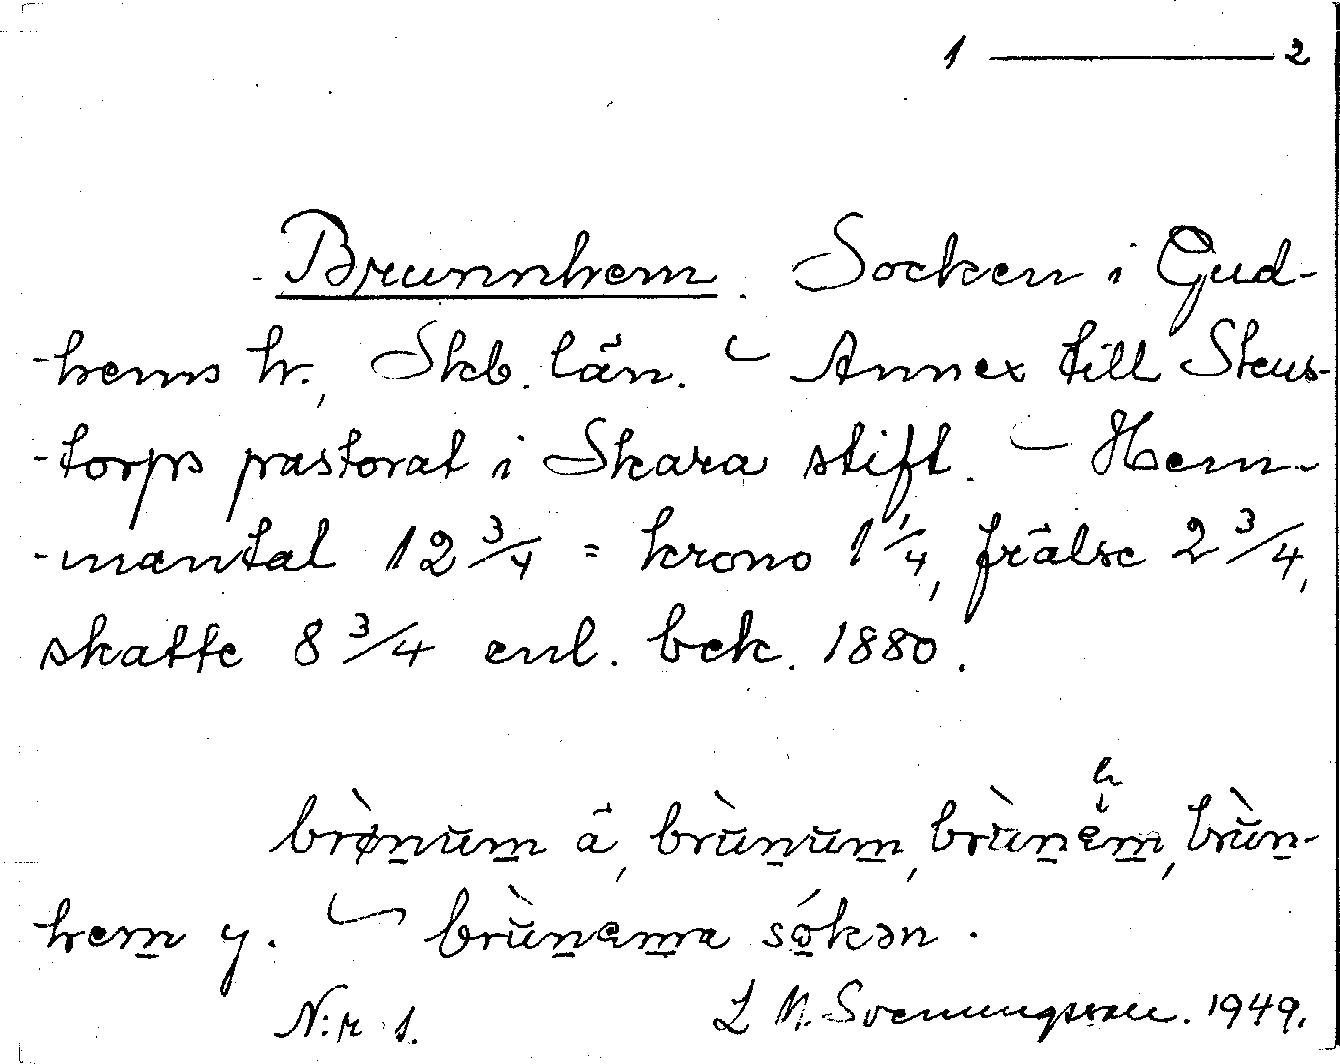 1 — 2
Brunnhem. Socken i Gud-
-hems h., Skb. län. — Annex till Stens-
-torps pastorat i Skara stift. — Hem-
-mantal 12 3/4 = krono 1 1/4, frälse 2 3/4,
skatte 8 3/4 enl. bek. 1880.
h
brø̀nŭm ä, brùnŭm, brùnem, brùn-
hem y. — brùnema sókən.
N:r 1. L. N. Svenungsson. 1949.